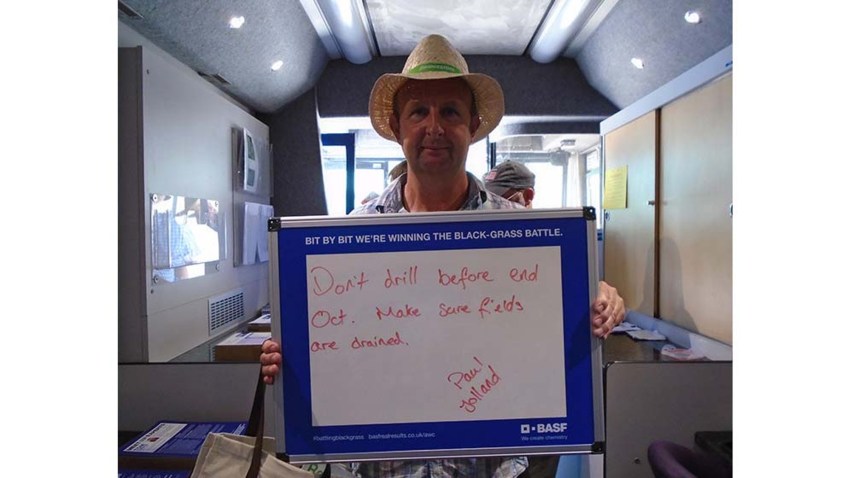 BIT BY BIT WE'RE WINNING THE BLACK-GRASS BATTLE.
Don't drill before end
Oct. Make sure fields
are drained.
Paul
Jolland
#battlingblackgrass basfrealresults.co.uk/awc
BASF
We create chemistry